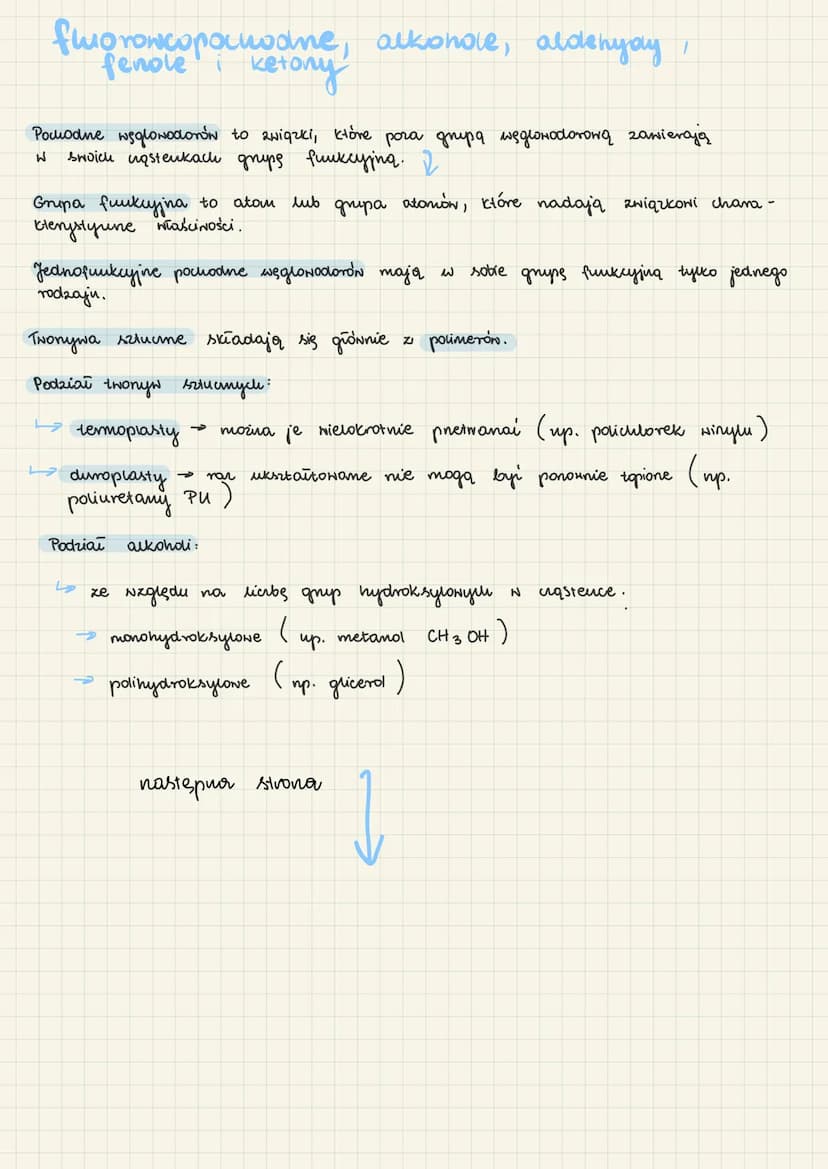 fluorowcopochodne, alkohole, aldehydy,
fenole i ketony
Pochodne węglowodorów to związki, które poza grupą węglowodorową zawierają
w swoich cząsteczkach grupę funkcyjną.
Grupa funkcyjna to atom lub grupa atomów, które nadają związkowi chara-
kterystyczne właściwości.
Jednofunkcyjne pochodne węglowodorów mają w sobie grupę funkcyjną tylko jednego
rodzaju.
Tworzywa sztuczne składają się głównie z polimerów.
Podział tworzyw sztucznych:
↳ termoplasty → można je wielokrotnie przetwarzać (np. polichlorek winylu)
↳ duroplasty → raz ukształtowane nie mogą być ponownie topione (np.
poliuretany PU)
Podział alkoholi:
↳ ze względu na liczbę grup hydroksylowych w cząsteczce.
→ monohydroksylowe (np. metanol CH3OH)
→ polihydroksylowe (np. glicerol)
następna strona